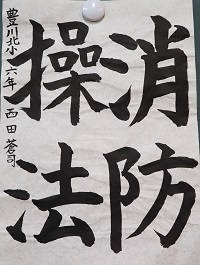 消防
操法
豊川北小 六年 西田蒼司